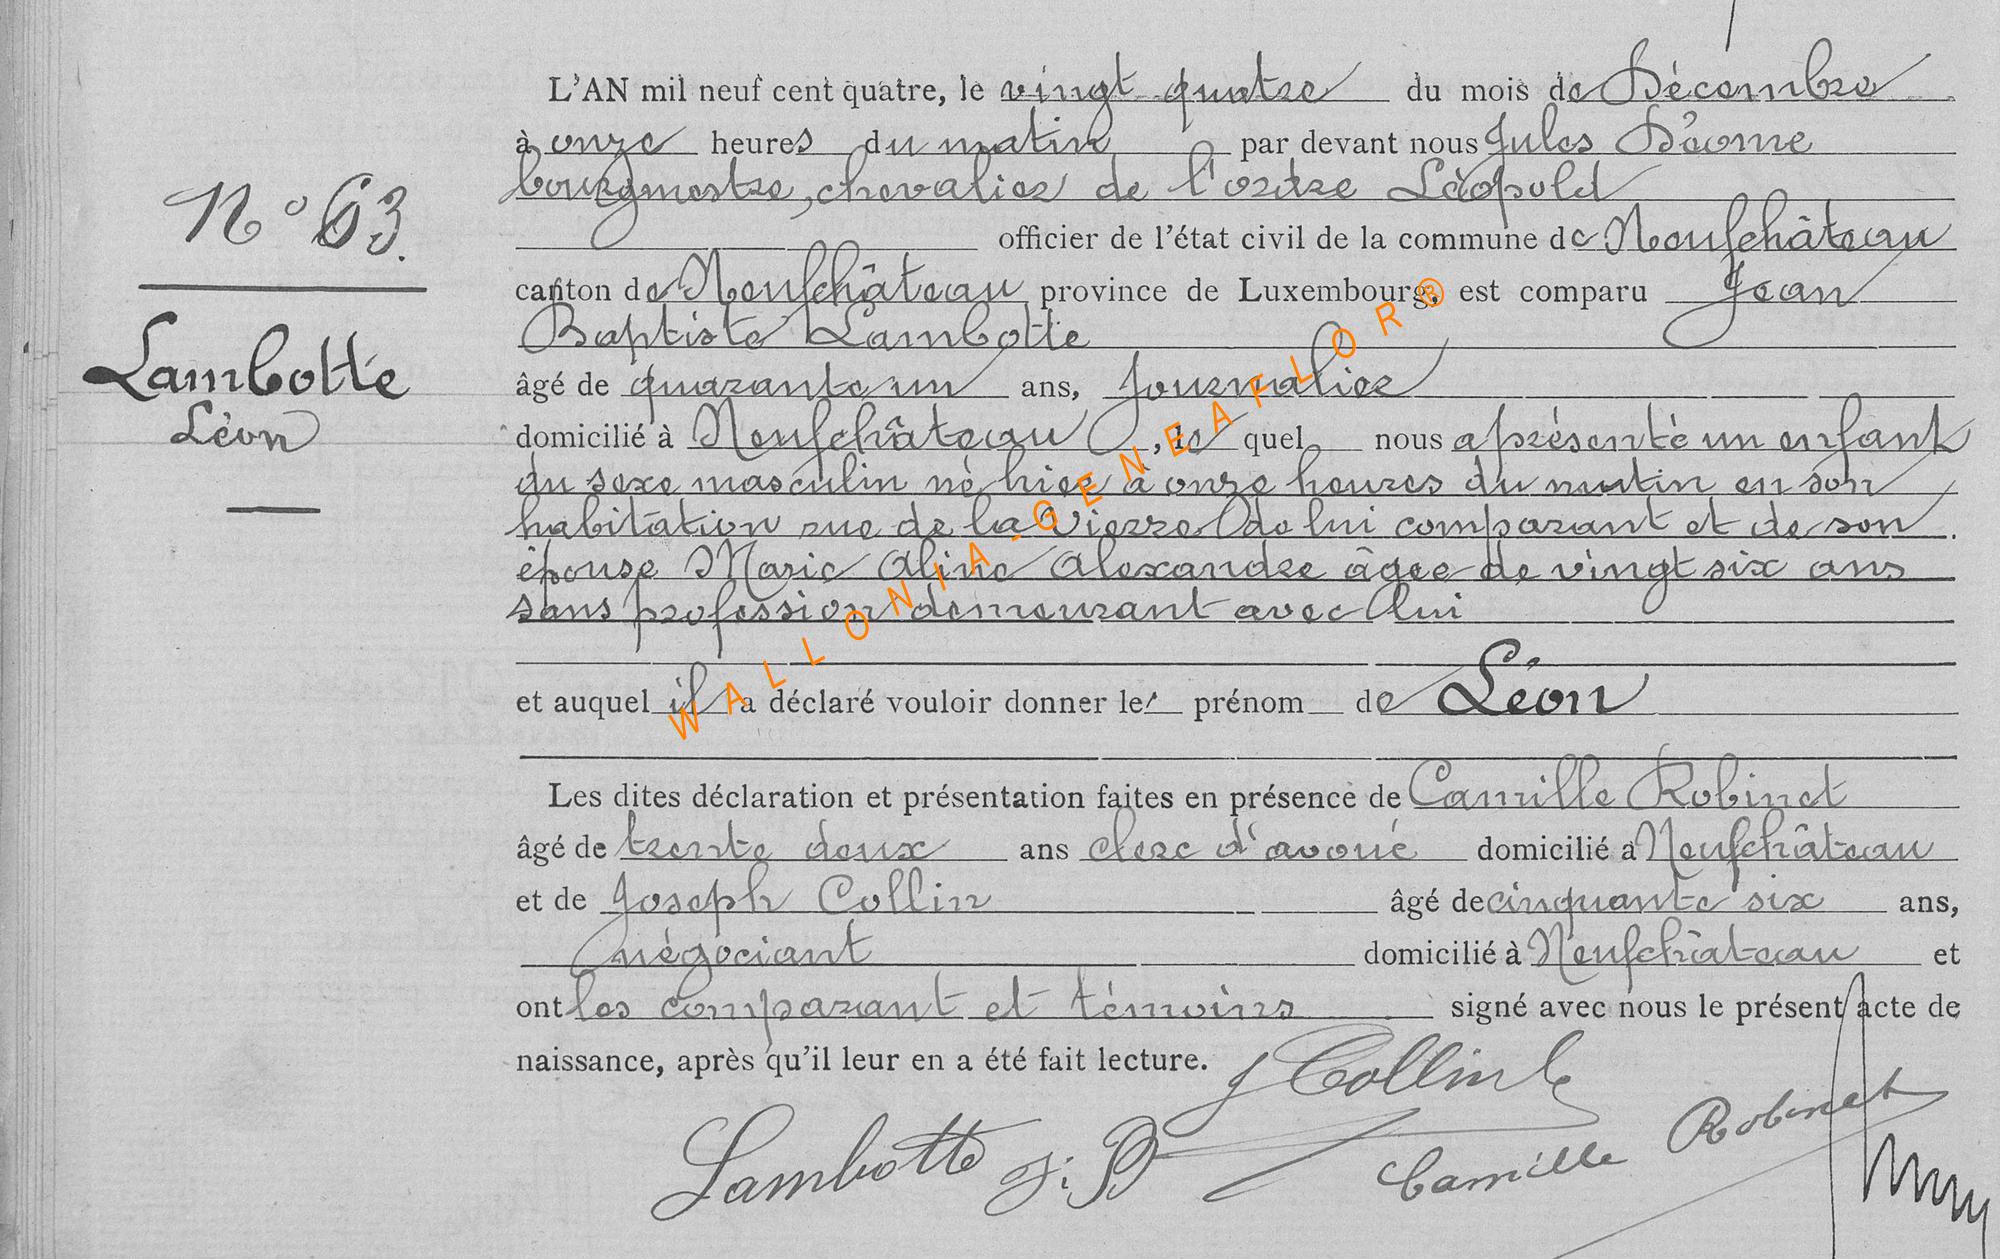 N° 63.
Lambotte
Léon
L'AN mil neuf cent quatre, le vingt quatre du mois de Décembre
à onze heures du matin par devant nous Jules
bourgmestre, chevalier de l'ordre Léopold
officier de l'état civil de la commune de Neufchâteau
canton de Neufchâteau province de Luxembourg, est comparu Jean
Baptiste Lambotte
âgé de quarante un ans, Journalier
domicilié à Neufchâteau, le quel nous a présenté un enfant
du sexe masculin né hier à onze heures du matin en son
habitation rue de la Vierre de lui comparant et de son
épouse Marie Aline Alexandre âgée de vingt six ans
sans profession demeurant avec lui
et auquel il a déclaré vouloir donner le prénom de Léon
Les dites déclaration et présentation faites en présence de Camille Robinet
âgé de trente deux ans clerc d'avoué domicilié à Neufchâteau
et de Joseph Collin âgé de cinquante six ans,
négociant domicilié à Neufchâteau et
ont les comparant et témoins signé avec nous le présent acte de
naissance, après qu'il leur en a été fait lecture.
J Collin
Lambotte J. B
Camille Robinet
WALLONIA-GENEAFLOR®